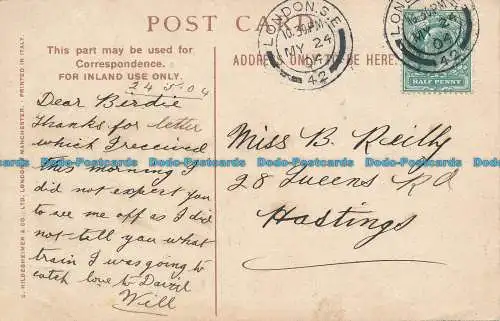 POST CARD
This part may be used for
Correspondence.
FOR INLAND USE ONLY.
ADDRESS ONLY TO BE HERE.
24.5.04
Dear Birdie
Thanks for letter
which I received
this morning I
did not expect you
to see me off as I did
not tell you what
train I was going to
catch love to
Will
Miss B. Reilly
28 Queens Rd
Hastings
LONDON. S.E.
10.30PM
MY 24
04
42
LONDON
MY 24
04
42
HALF PENNY
S. HILDESHEIMER & CO., LTD. LONDON & MANCHESTER. PRINTED IN ITALY.
Dodo-Postcards Dodo-Postcards Dodo-Postcards Dodo-Postcards Dodo-Postcards Dodo-Postcards